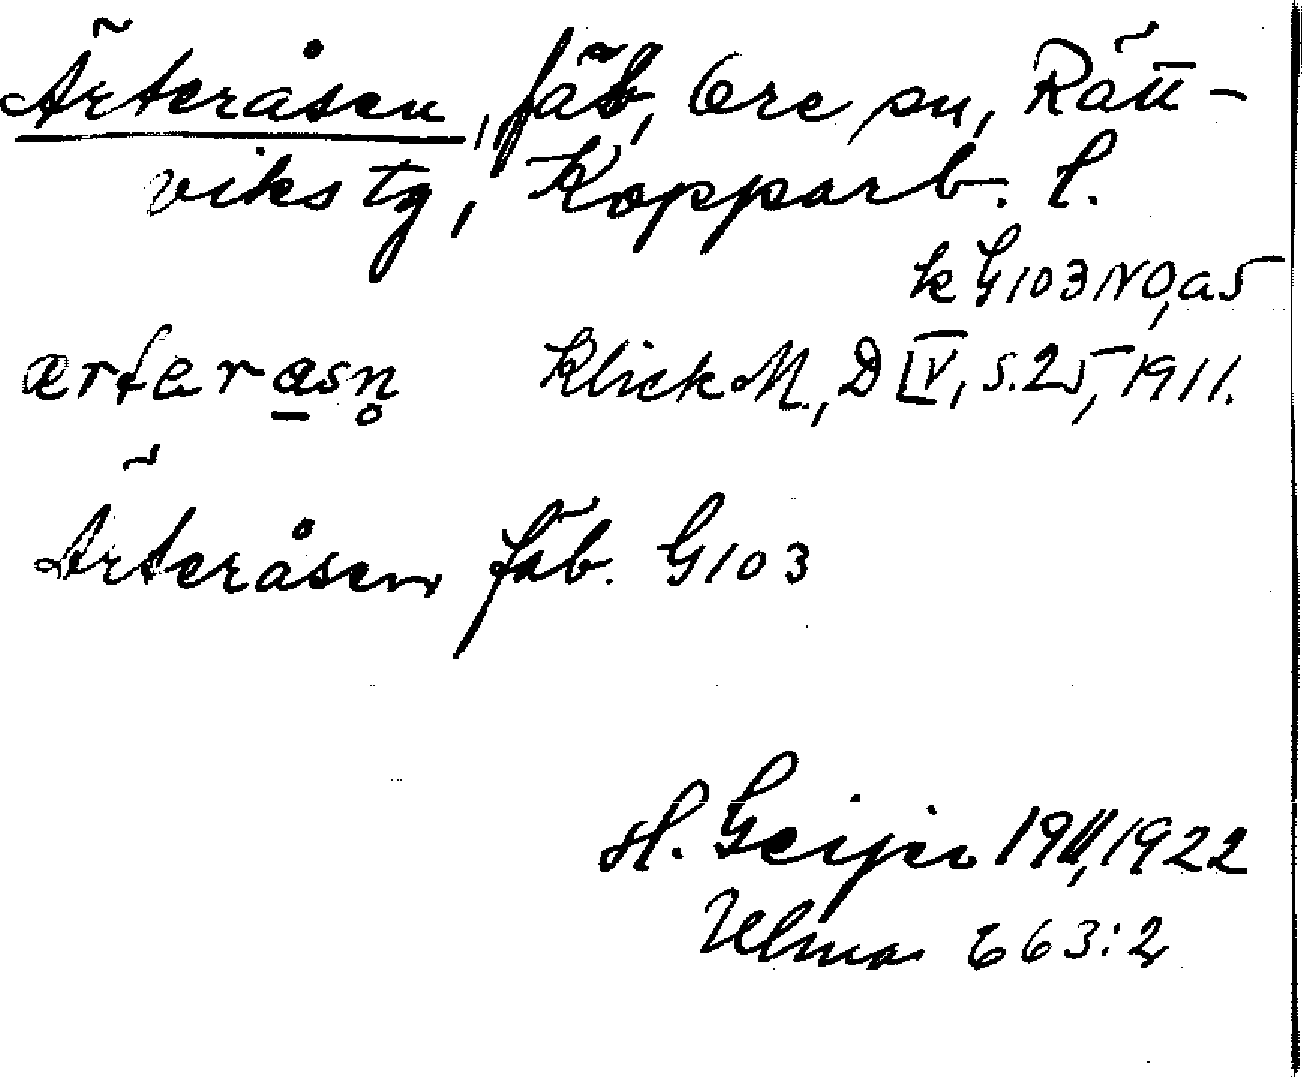 Ärteråsen, fäb, Ore sn, Rätt-
viks tg, Kopparb. l.
k G103 NO, a5
ærterasn̥ Klick M., D IV, s. 25, 1911.
Ärteråsen fäb. G103
H. Geijer 1911, 1922
Ulma 663:2